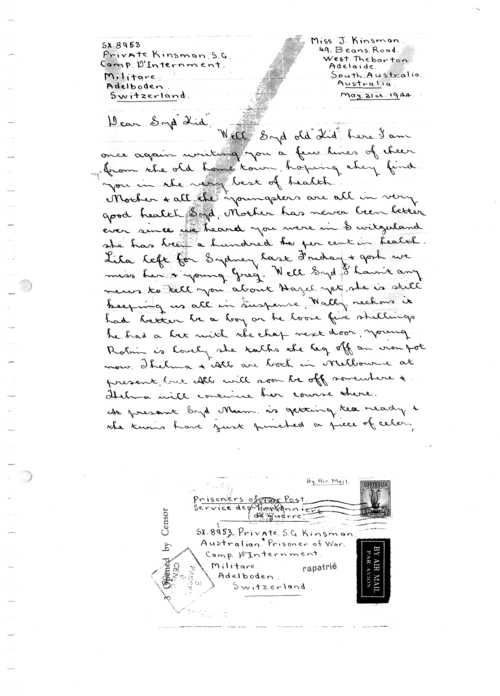 SX.8953
Private Kinsman S.G.
Camp. D'Internment.
Militare.
Adelboden.
Switzerland.
Miss J. Kinsman.
49. Beans. Road.
West. Thebarton
Adelaide.
South. Australia.
Australia
May. 21st. 1944
Dear Syd "Kid"
Well Syd old "Kid" here I am
once again writing you a few lines of cheer
from the old home town, hoping they find
you in the very best of health.
Mother & all the youngsters are all in very
good health Syd, Mother has never been better
ever since we heard you were in Switzuland
she has been a hundred per cent in health.
Lila left for Sydney last Friday & gosh we
miss her & young Greg. Well Syd I havn't any
news to tell you about Hazel yet, she is still
keeping us all in suspense, Wally reckons it
had better be a boy or he loose five shellings
he had a bet with the chap next door, young
Robin is lovely she talks the leg off an iron pot
now. Thelma & Alb are both in Melbourne at
present, but Alb will soon be off somewhere &
Thelma will continue her course there.
At present Syd Mum. is getting tea ready &
the twins have just pinched a piece of celery,
By Air Mail.
Prisoners of War Post
Service des Prisonniers
de Guerre
SX.8953. Private. S.G. Kinsman
Australian Prisoner of War.
Camp. D'Internment
Militare
Adelboden.
Switzerland
rapatrié
3 Opened by Censor
AUSTRALIA
BY AIR MAIL
PAR AVION